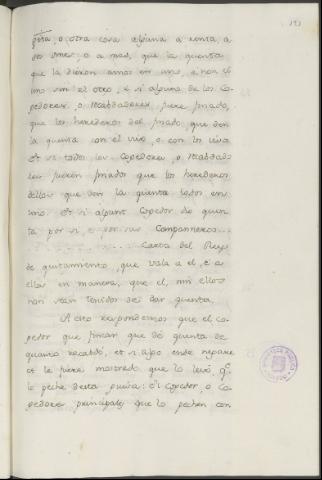 121
goda, o otra cosa alguna a renta, a
dos omes, o a mas, que la quenta
que la dieron amos en uno, e non el
uno sin el otro, e si alguno de los Co-
jedores, o recabdadores fuere finado,
que los herederos del finado, que den
la quenta con el vivo, o con los vivos
Et si todos los Cojedores, o recabdado-
res fueren finados que los herederos
dellos que den la quenta todos en
uno Et si algunt Cojedor dio quen-
ta por si, e por sus Companneros...
... Carta del Rey
de quitamiento, que vala a el, e a
ellos en manera, que el, nin ellos
non sean tenidos de dar quenta.
A esto respondemos que el Co-
jedor que fincar que dé quenta de
quanto recabdó, et si algo ende negare
et le fuere mostrado que lo levó, qe.
lo peche desta guisa: el Cojedor, o Co-
jedores principales que lo pechen con